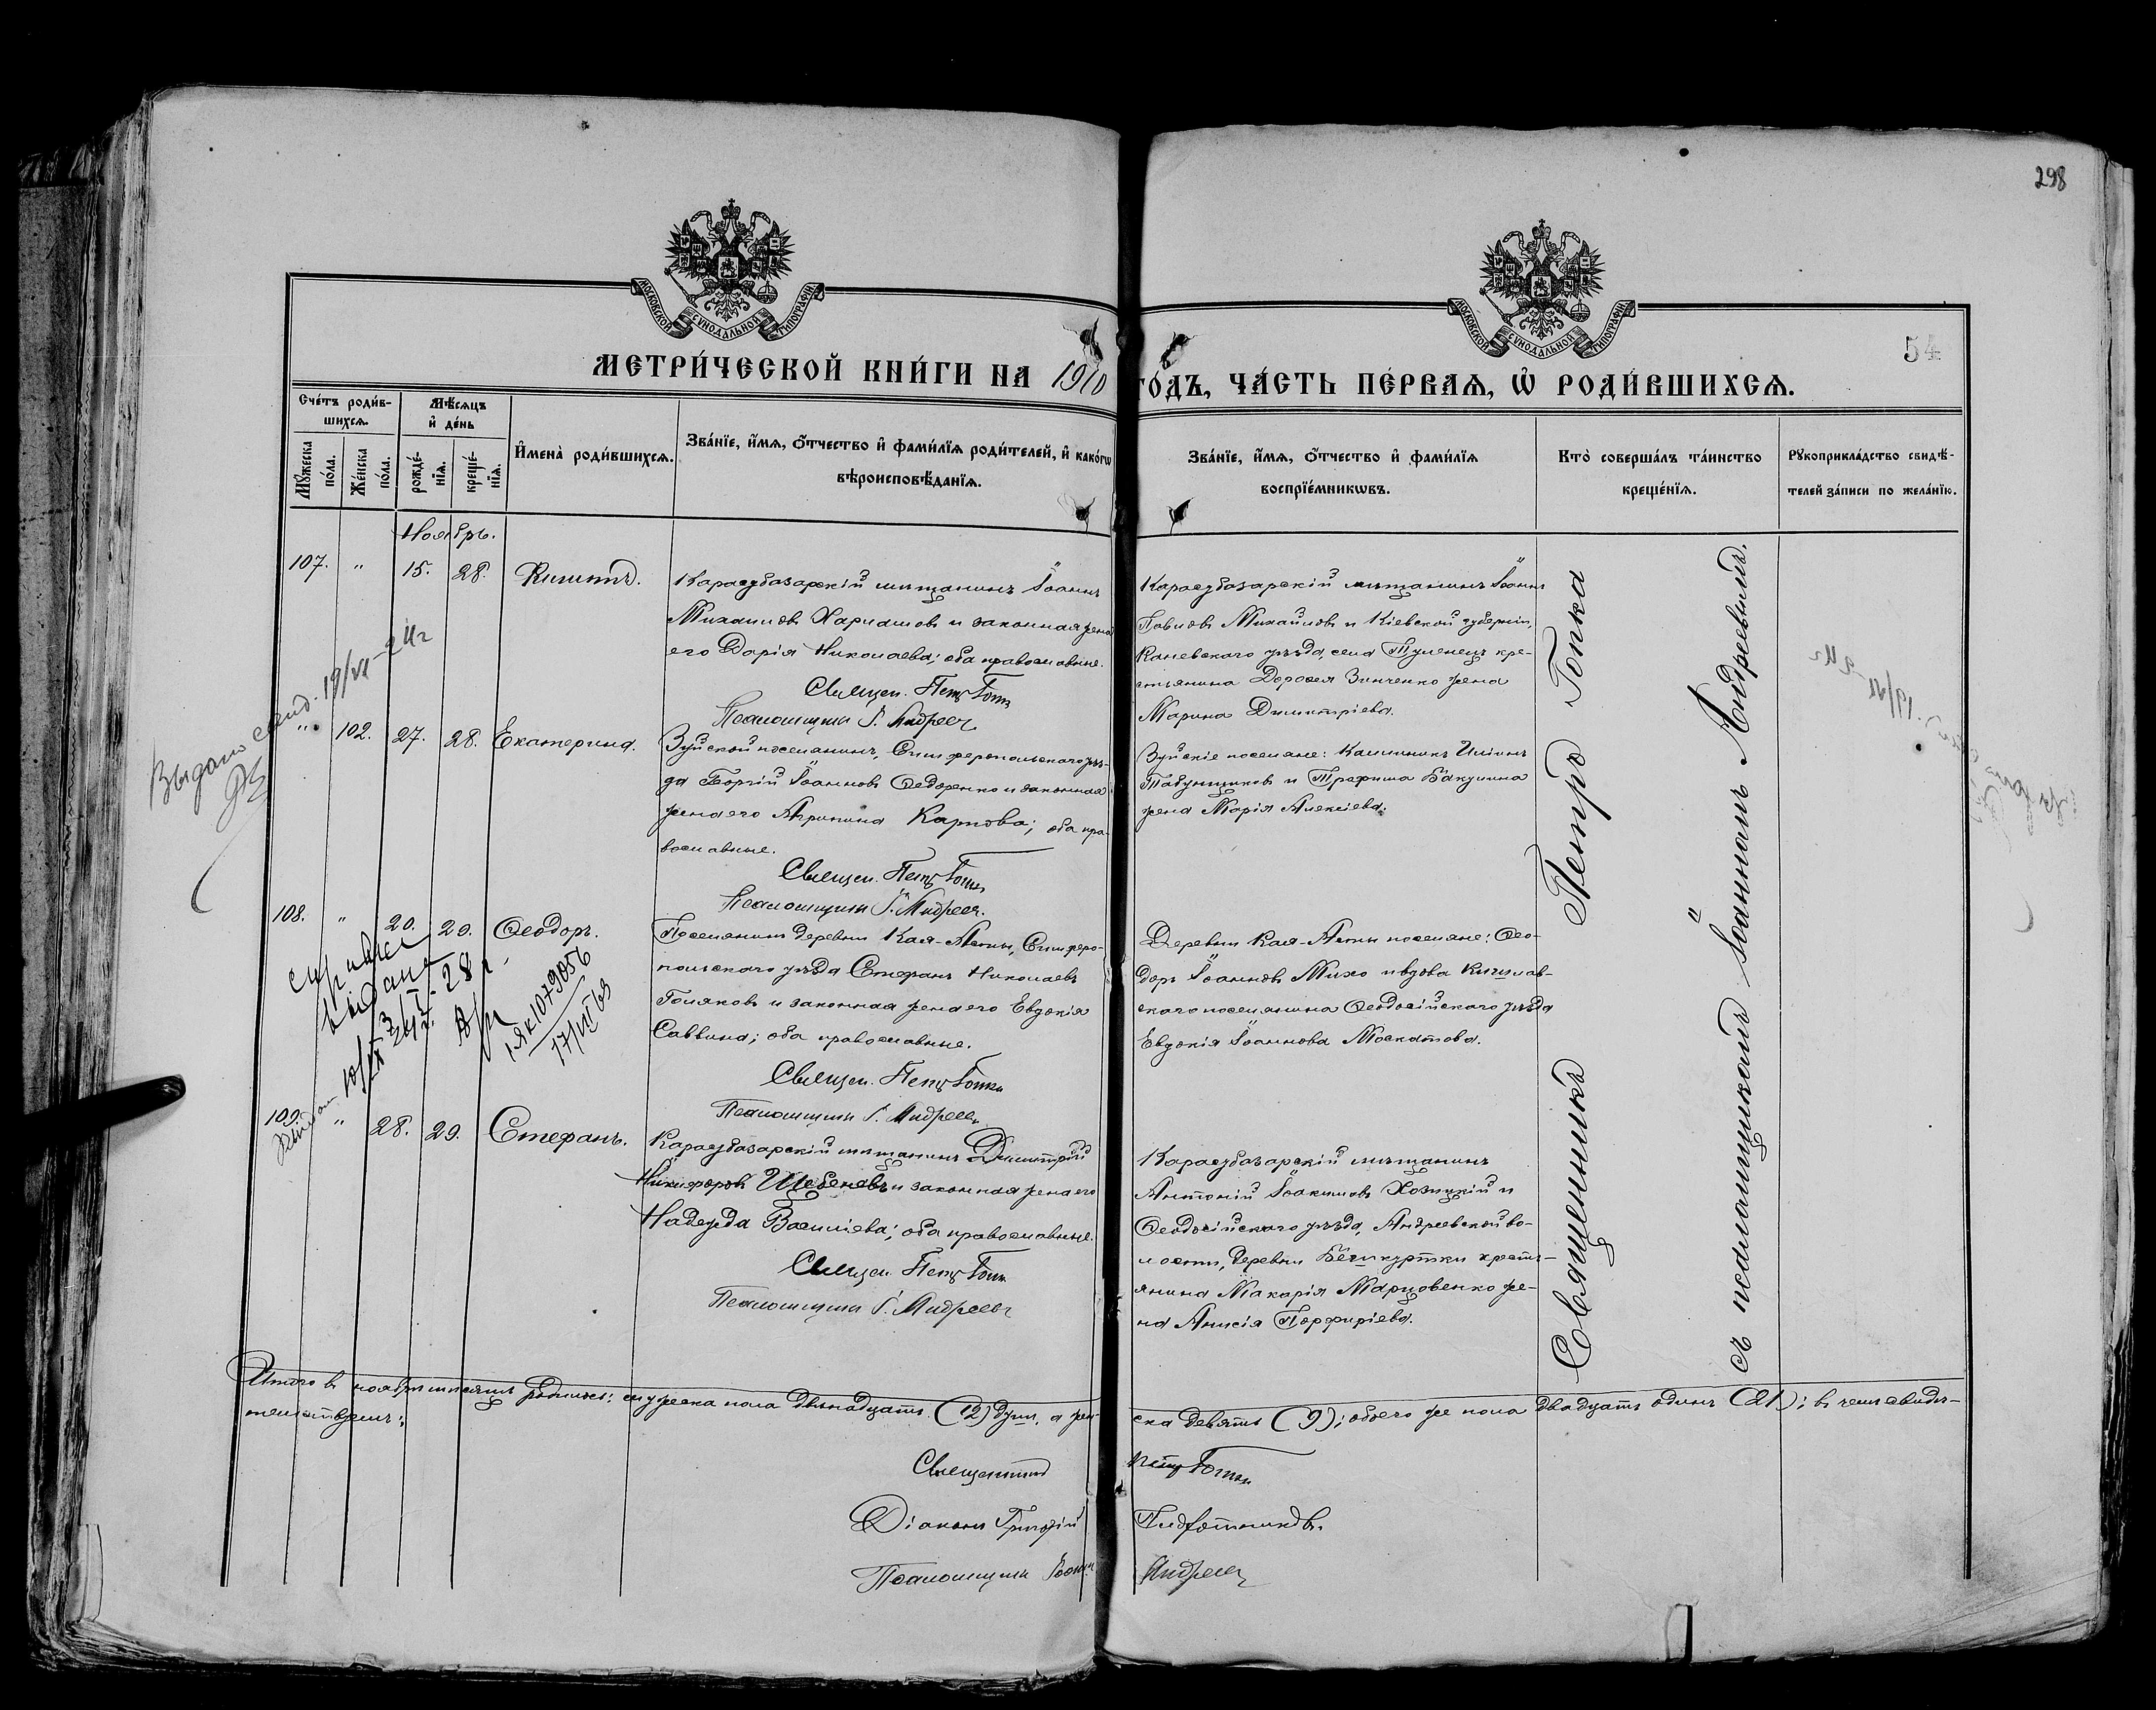 298
МОСКОВСКОЙ СѴНОДАЛЬНОЙ ТИПОГРАФІИ
МОСКОВСКОЙ СѴНОДАЛЬНОЙ ТИПОГРАФІИ
54
МЕТРИ́ЧЕСКОЙ КНИ́ГИ НА 1910 ГО́ДЪ, ЧА́СТЬ ПЕ́РВАѦ, Ѡ҆ РОДИ́ВШИХСѦ.
Сче́тъ роди́в-
шихсѧ.
Мѣ́сѧцъ
и҆ де́нь
Мꙋ́жеска
по́ла.
Же́нска
по́ла.
рожде́-
нїѧ.
креще́-
нїѧ.
И҆мена̀ роди́вшихсѧ.
Зва́нїе, и҆́мѧ, ѻ҆́тчество и҆ фами́лїѧ роди́телей, и҆ како́гѡ
вѣроисповѣ́данїѧ.
Зва́нїе, и҆́мѧ, ѻ҆́тчество и҆ фами́лїѧ
воспрїе́мникѡвъ.
Кто̀ соверша́лъ та́инство
креще́нїѧ.
Рꙋкоприкла́дство свидѣ́-
телей за́писи по жела́нїю.
Ноябрь.
107. " 15. 28.
Карасубазарскій мѣщанинъ Іоаннъ
Михаиловъ Харлашовъ и законная жена
его Дарія Николаева; оба православные.
Священ. Петръ Гопка
Псаломщикъ І. Андреевъ
Карасубазарскій мѣщанинъ Іоаннъ
Павловъ Михайловъ и Кіевской губерніи,
Каневскаго уѣзда, села Тулинецъ кре-
стьянина Дорофея Зинченко жена
Марина Димитріева.
Выдано свид. 19/VI-24г
" 102. 27. 28. Екатерина.
Зуйской поселянинъ, Симферопольскаго уѣз-
да Георгій Іоанновъ Федоренко и законная
жена его Агрипина Карпова; оба пра-
вославные.
Священ. Петръ Гопка
Псаломщикъ І. Андреевъ.
Зуйскіе поселяне: Каллиникъ Иліинъ
Табунщиковъ и Трофима Бакулина
жена Марія Алексіева.
108. " 20. 29. Ѳеодоръ.
Поселянинъ деревни Кая-Асты, Симферо-
польскаго уѣзда Стефанъ Николаевъ
Голяковъ и законная жена его Евдокія
Саввина; оба православные.
Священ. Петръ Гопка
Псаломщикъ І. Андреевъ
Деревни Кая-Асты поселяне: Ѳео-
доръ Іоанновъ Михо и вдова Кишлав-
скаго поселянина Ѳеодосійскаго уѣзда
Евдокія Іоаннова Москатова.
1ЯК1079056
17/VII 63
109. " 28. 29. Стефанъ.
Карасубазарскій мѣщанинъ Димитрій
Никифоровъ Щебеневъ и законная жена его
Надежда Василіева; оба православные.
Священ. Петръ Гопка
Псаломщикъ І. Андреевъ
Карасубазарскій мѣщанинъ
Антоній Іоакимовъ Хозицкій и
Ѳеодосійскаго уѣзда, Андреевской во-
лости, деревни Бешкуртки кресть-
янина Макарія Марцовенко же-
на Анисія Порфиріева.
Священникъ Петръ Гопка
съ псаломщикомъ Іоанномъ Андреевымъ.
Итого въ ноябрѣ мѣсяцѣ родилось: мужеска пола двѣнадцать (12) душъ, а жен-
ска девять (9); обоего же пола двадцать одинъ (21); въ чемъ свидѣ-
тельствуемъ:
Священникъ Петръ Гопка
Діаконъ Григорій
Псаломщикъ Іоаннъ Андреевъ